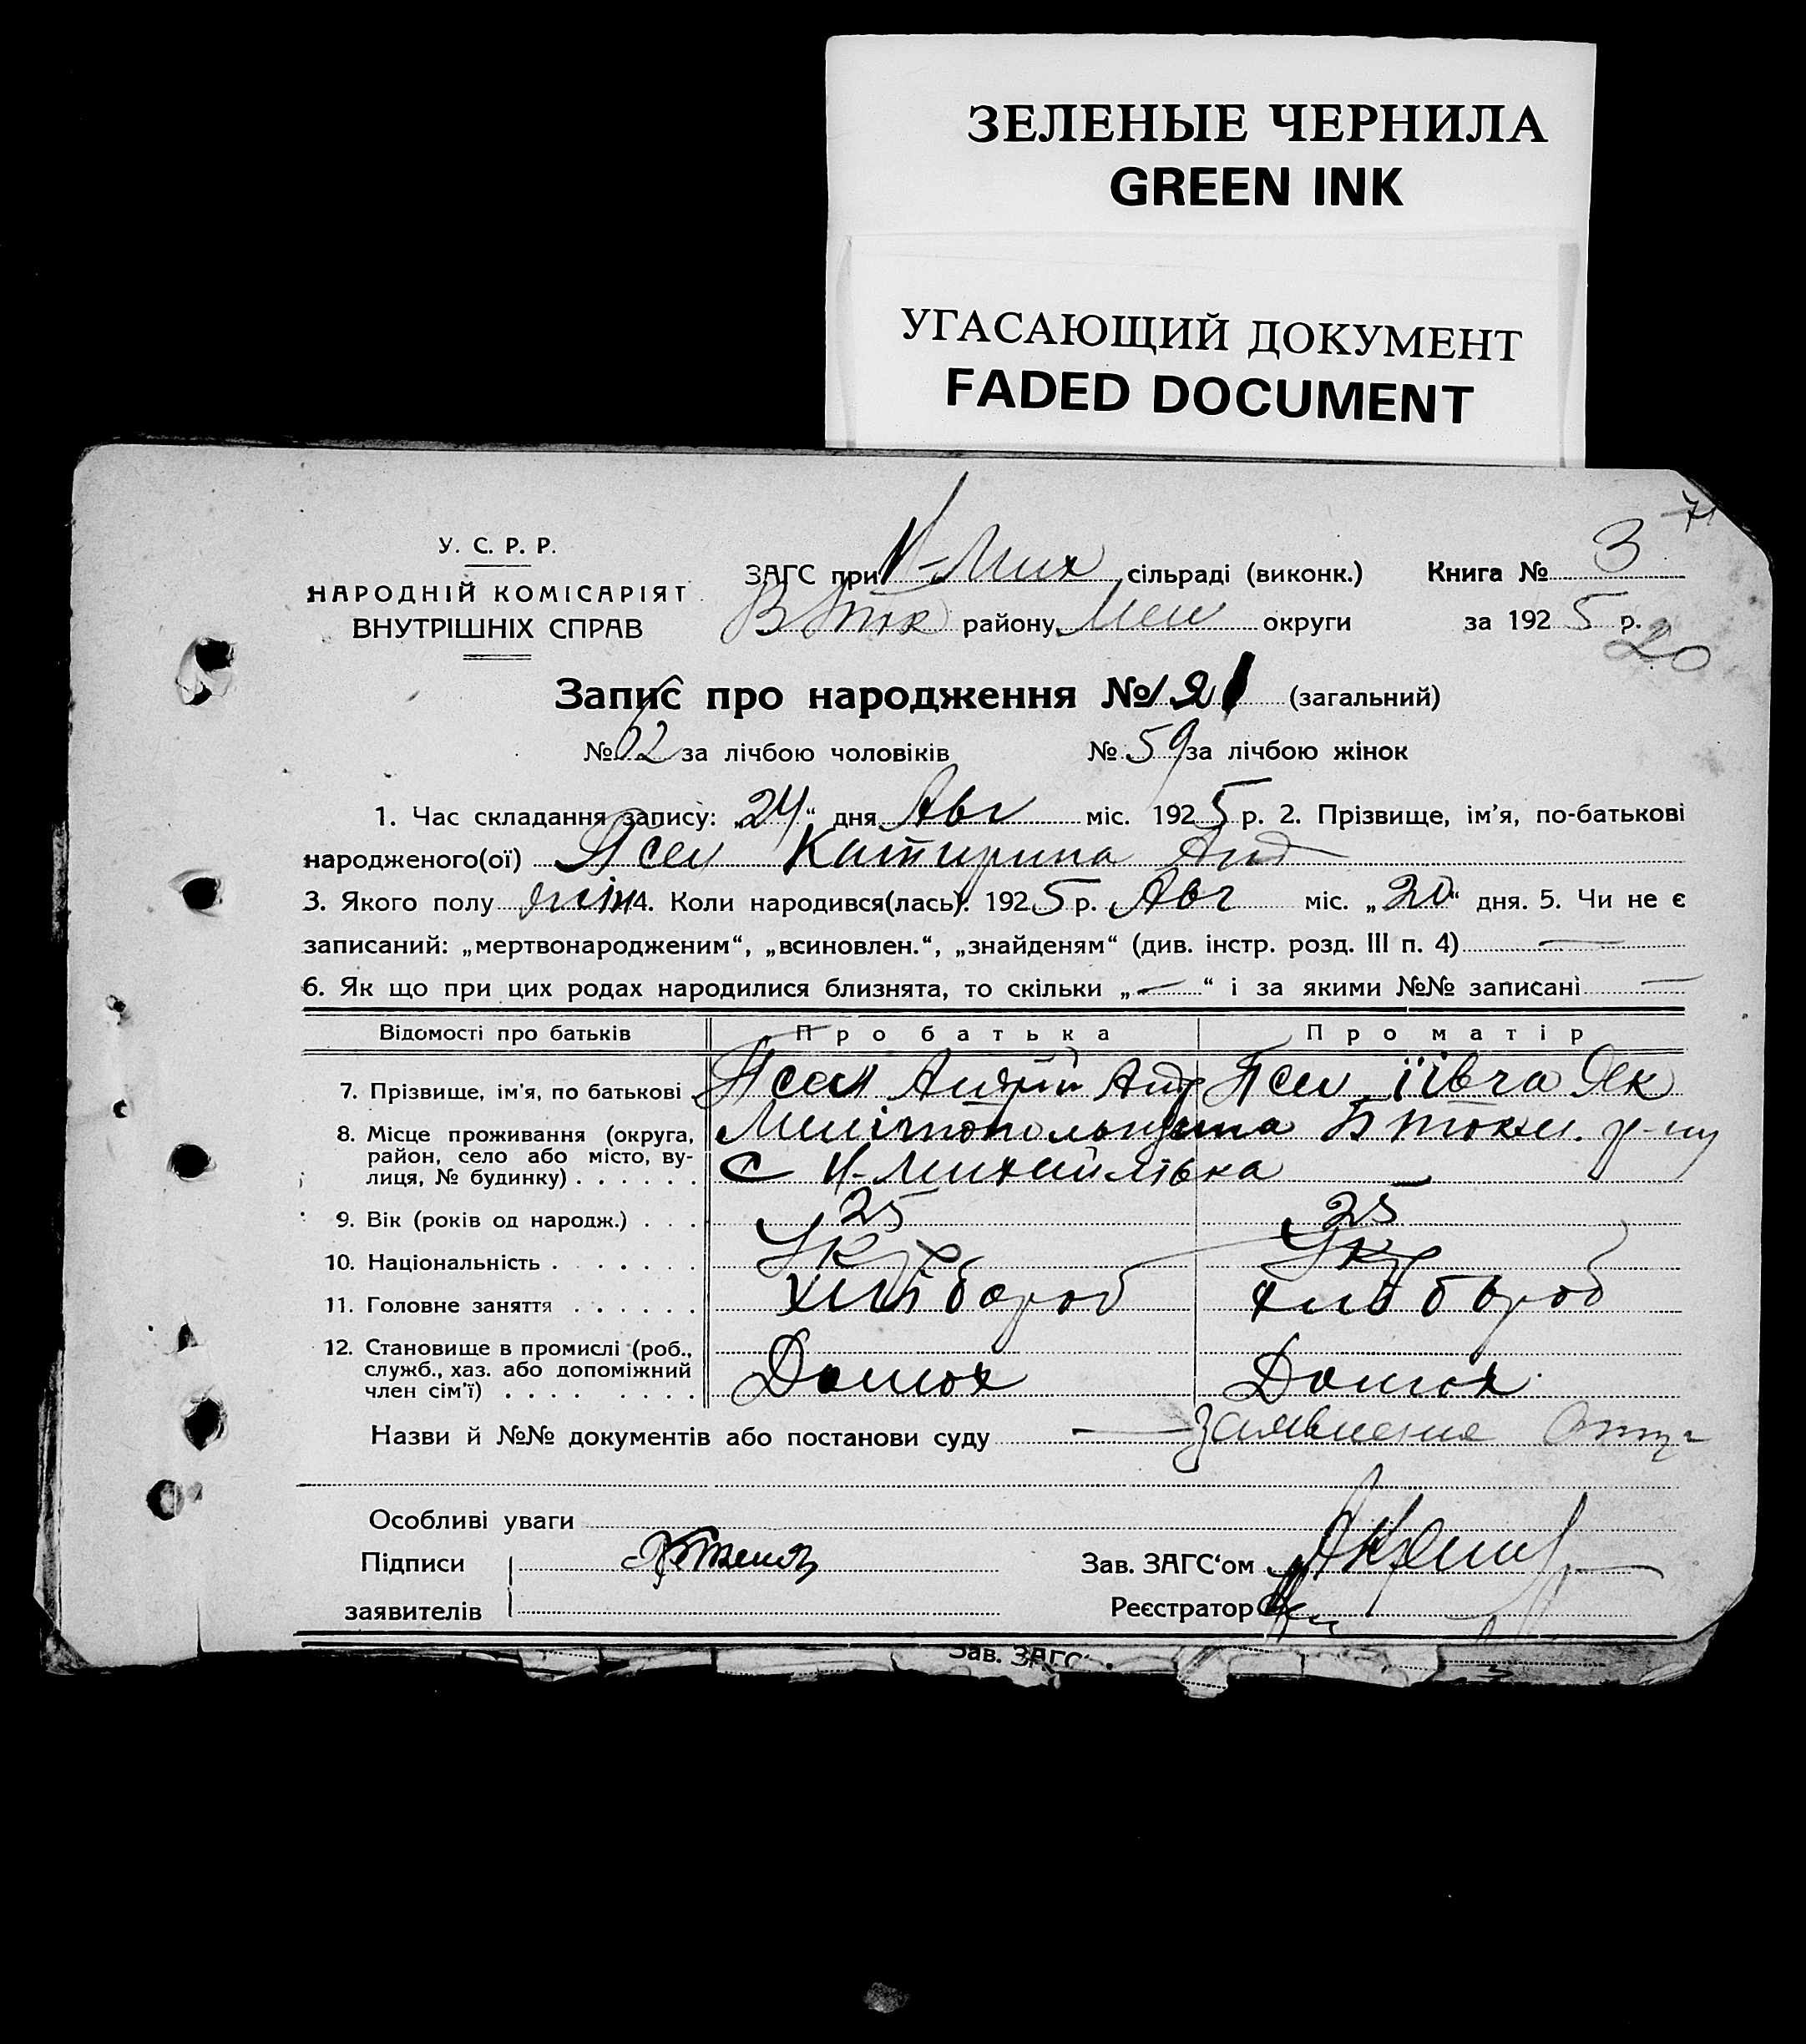 ЗЕЛЕНЫЕ ЧЕРНИЛА
GREEN INK
УГАСАЮЩИЙ ДОКУМЕНТ
FADED DOCUMENT
71
У. С. Р. Р.
НАРОДНІЙ КОМІСАРІЯТ
ВНУТРІШНІХ СПРАВ
ЗАГС при Н-Мих сільраді (виконк.) Книга № 3
В Ток району Мел округи за 1925 р.
20
Запис про народження № 121 (загальний)
№ 62 за лічбою чоловіків № 59 за лічбою жінок
1. Час складання запису: „24“ дня Авг міс. 1925 р. 2. Прізвище, ім'я, по-батькові
народженого(ої) Псел Катирина Анд
3. Якого полу жін 4. Коли народився(лась). 1925 р. Авг міс. „20“ дня. 5. Чи не є
записаний: „мертвонародженим“, „всиновлен.“, „знайденям“ (див. інстр. розд. III п. 4) —
6. Як що при цих родах народилися близнята, то скільки „—“ і за якими №№ записані —
Відомості про батьків Про батька Про матір
7. Прізвище, ім'я, по батькові Псел Андрій Анд Псел Як
8. Місце проживання (округа, Мелітопольщина Б Токм. р-ну
район, село або місто, ву-
лиця, № будинку) . . . . . . с Н-Михайлівка
9. Вік (років од народж.) . . . 25 25
10. Національність . . . . . . . Укр Укр
11. Головне заняття . . . . . . Хлібороб Хлібороб
12. Становище в промислі (роб.,
служб., хаз. або допоміжний
член сім'ї) . . . . . . . . Домох Домох
Назви й №№ документів або постанови суду — Заявление
Особливі уваги
Підписи Зав. ЗАГС'ом
заявителів Реєстратор
Зав. ЗАГС'